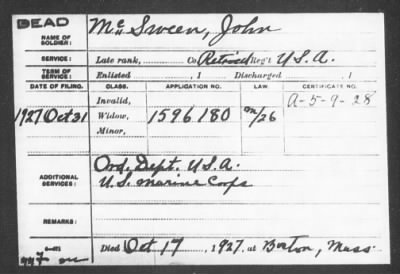 DEAD
NAME OF SOLDIER: McSween, John
SERVICE: Late rank, Co. Retired Reg't U.S.A.
TERM OF SERVICE: Enlisted , 1 Discharged , 1
DATE OF FILING. CLASS. APPLICATION NO. LAW. CERTIFICATE NO.
Invalid, A-5-9-28
1927 Oct 31 Widow, 1596180 m/26
Minor,
ADDITIONAL SERVICES: Ord. Dept. U.S.A.
U.S. Marine Corps
REMARKS:
Died Oct 17, 1927, at Boston, Mass.